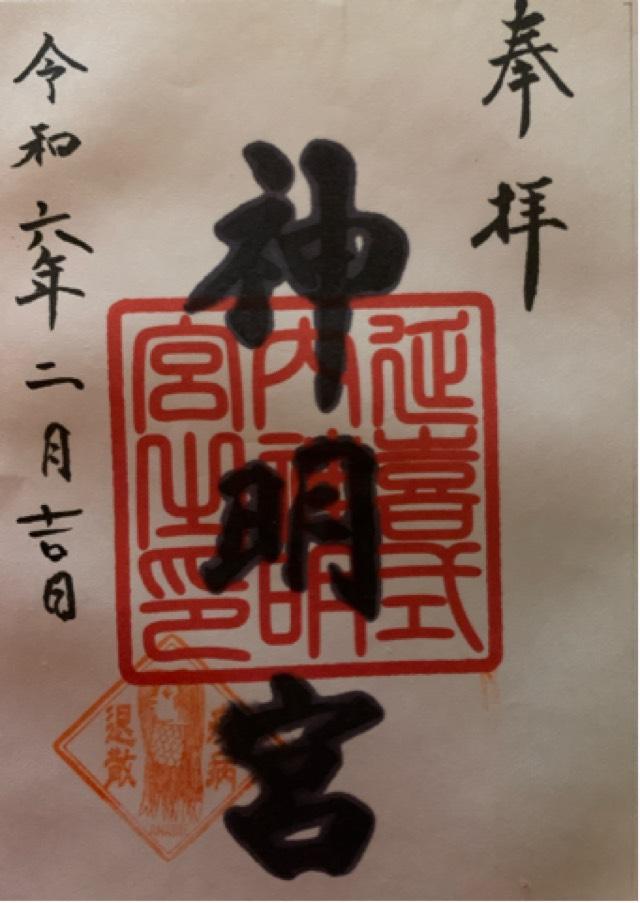 奉拝
神明宮
延喜式
内神明
宮之印
令和六年二月吉日
疫病
退散